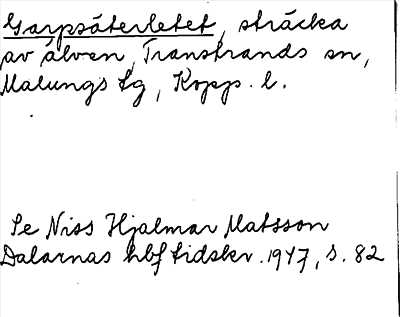 Garpsäterletet, sträcka
av älven, Transtrands sn,
Malungs tg, Kopp. l.
Se Niss Hjalmar Matsson
Dalarnas hbf tidskr. 1947, s. 82